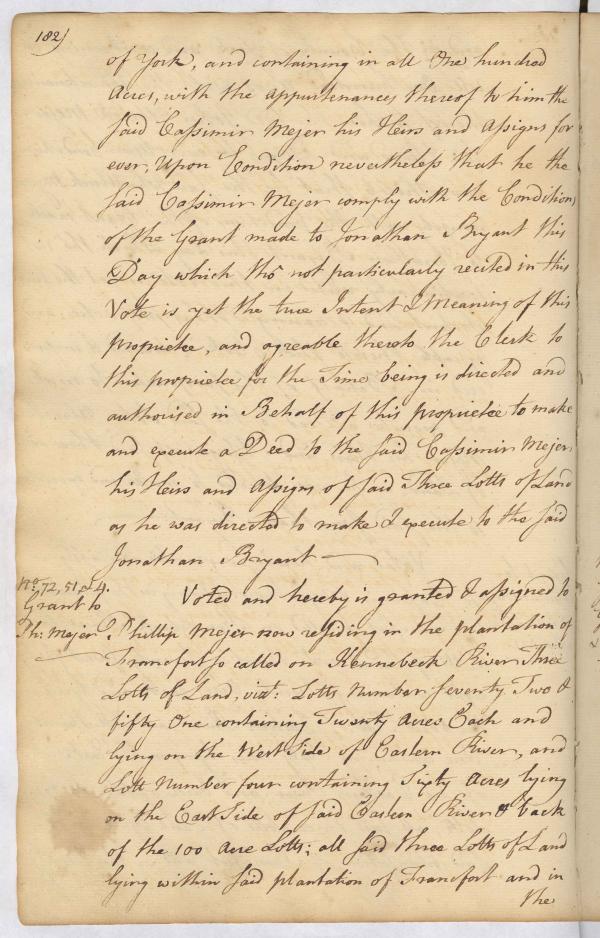 182)
of York, and containing in all One hundred
Acres, with the appurtenances thereof to him the
said Cassimir Mejer his Heirs and Assigns for
ever, Upon Condition nevertheless that he the
said Cassimir Mejer comply with the Conditions
of the Grant made to Jonathan Bryant this
Day which tho' not particularly recited in this
Vote is yet the true Intent & Meaning of this
propriet̄ee, and agreable thereto the Clerk to
this propriet̄ee for the Time being is directed and
authorised in Behalf of this propriet̄ee to make
and execute a Deed to the said Cassimir Mejer
his Heirs and Assigns of said Three Lotts of Land
as he was directed to make & execute to the said
Jonathan Bryant
No. 72, 51, & 4.
Grant to
Ph: Mejer
Voted and hereby is granted & assigned to
Phillip Mejer now residing in the plantation of
Francfort so called on Kennebeck River Three
Lotts of Land, vizt: Lotts Number Seventy Two &
fifty One containing Twenty Acres Each and
lying on the West Side of Eastern River, and
Lott Number four containing Sixty Acres lying
on the East Side of said Eastern River & back
of the 100 Acre Lotts; all said three Lotts of Land
lying within said plantation of Francfort and in
the